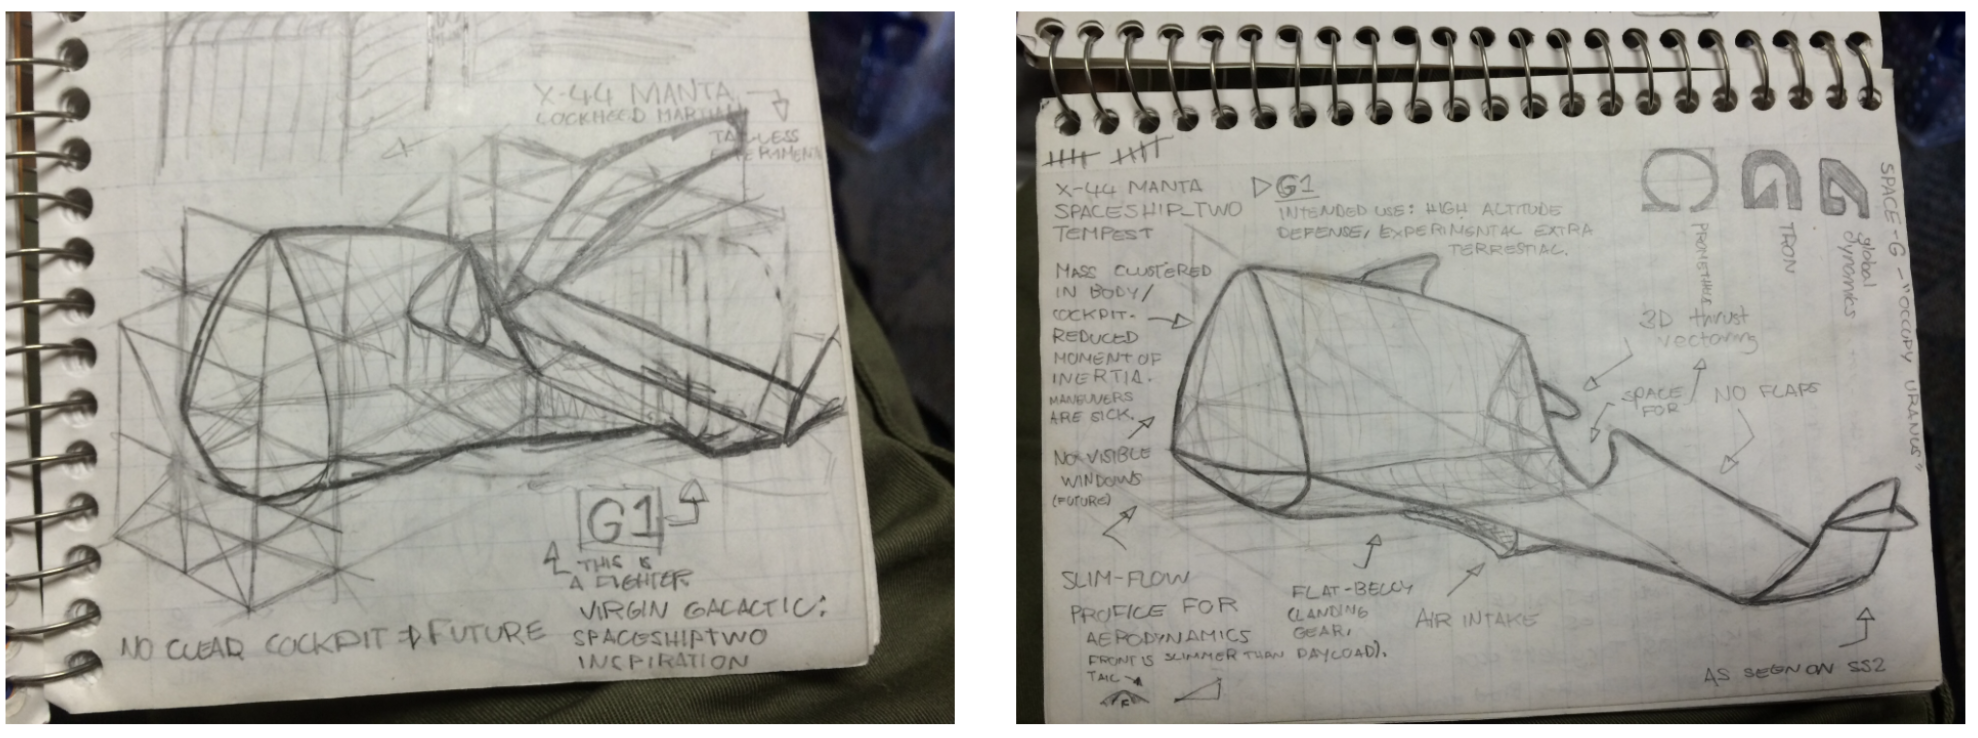 X-44 MANTA
LOCKHEED MARTIN
TAILLESS
G1
THIS IS
A FIGHTER.
VIRGIN GALACTIC:
SPACESHIPTWO
INSPIRATION
NO CLEAR COCKPIT → FUTURE
X-44 MANTA
SPACESHIP_TWO
TEMPEST
▷ G1
INTENDED USE: HIGH ALTITUDE
DEFENSE, EXPERIMENTAL EXTRA
TERRESTIAL.
MASS CLUSTERED
IN BODY/
COCKPIT.
REDUCED
MOMENT OF
INERTIA.
MANEUVERS
ARE SICK.
NO VISIBLE
WINDOWS
(FUTURE)
SLIM-FLOW
PROFILE FOR
AERODYNAMICS
FRONT IS SLIMMER THAN PAYLOAD).
TAIL
FLAT-BELLY
(LANDING
GEAR,
AIR INTAKE
3D thrust
vectoring
SPACE
FOR
NO FLAPS
AS SEEN ON SS2
PROMETHEUS
G
TRON
G
global
dynamics
SPACE-G - "OCCUPY URANUS"